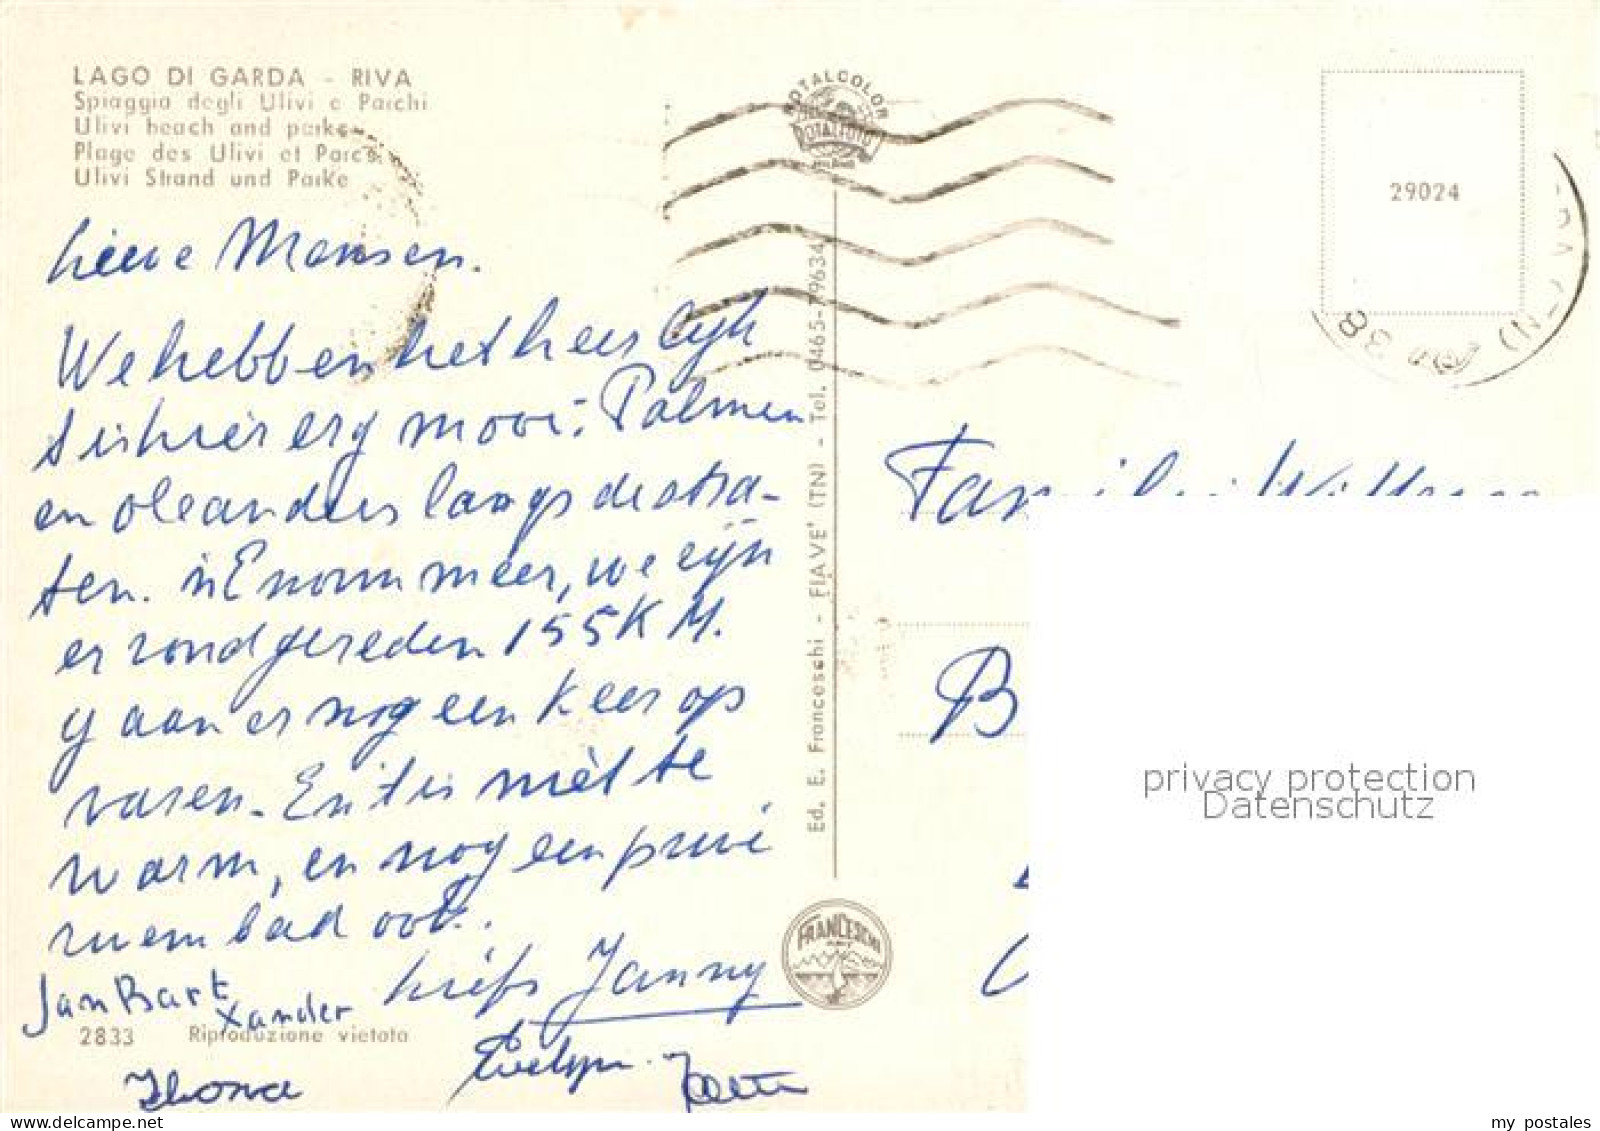 LAGO DI GARDA - RIVA
Spiaggia degli Ulivi e Parchi
Ulivi beach and parks
Plage des Ulivi et Parcs
Ulivi Strand und Parke
ROTALCOLOR
ROTALFOTO
MILANO
29024
38
Lieve Mensen.
We hebben het heerlijk
't is hier erg mooi; Palmen
en oleanders langs de stra-
ten. 'n Enorm meer, we zijn
er rond gereden 155 KM.
gaan er nog een keer op
varen. En 't is niet te
warm, en nog een privé
zwembad ook.
liefs Janny
Jan Bart
Xander
Evelyn
Ilona
Familie
B
Ed. E. Franceschi - FIAVE' (TN) - Tel. 0465-79634
FRANCESCHI
2833 Riproduzione vietata
privacy protection
Datenschutz
my postales